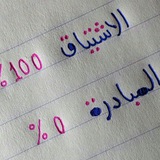 الاشتياق 100%
المبادرة 0%